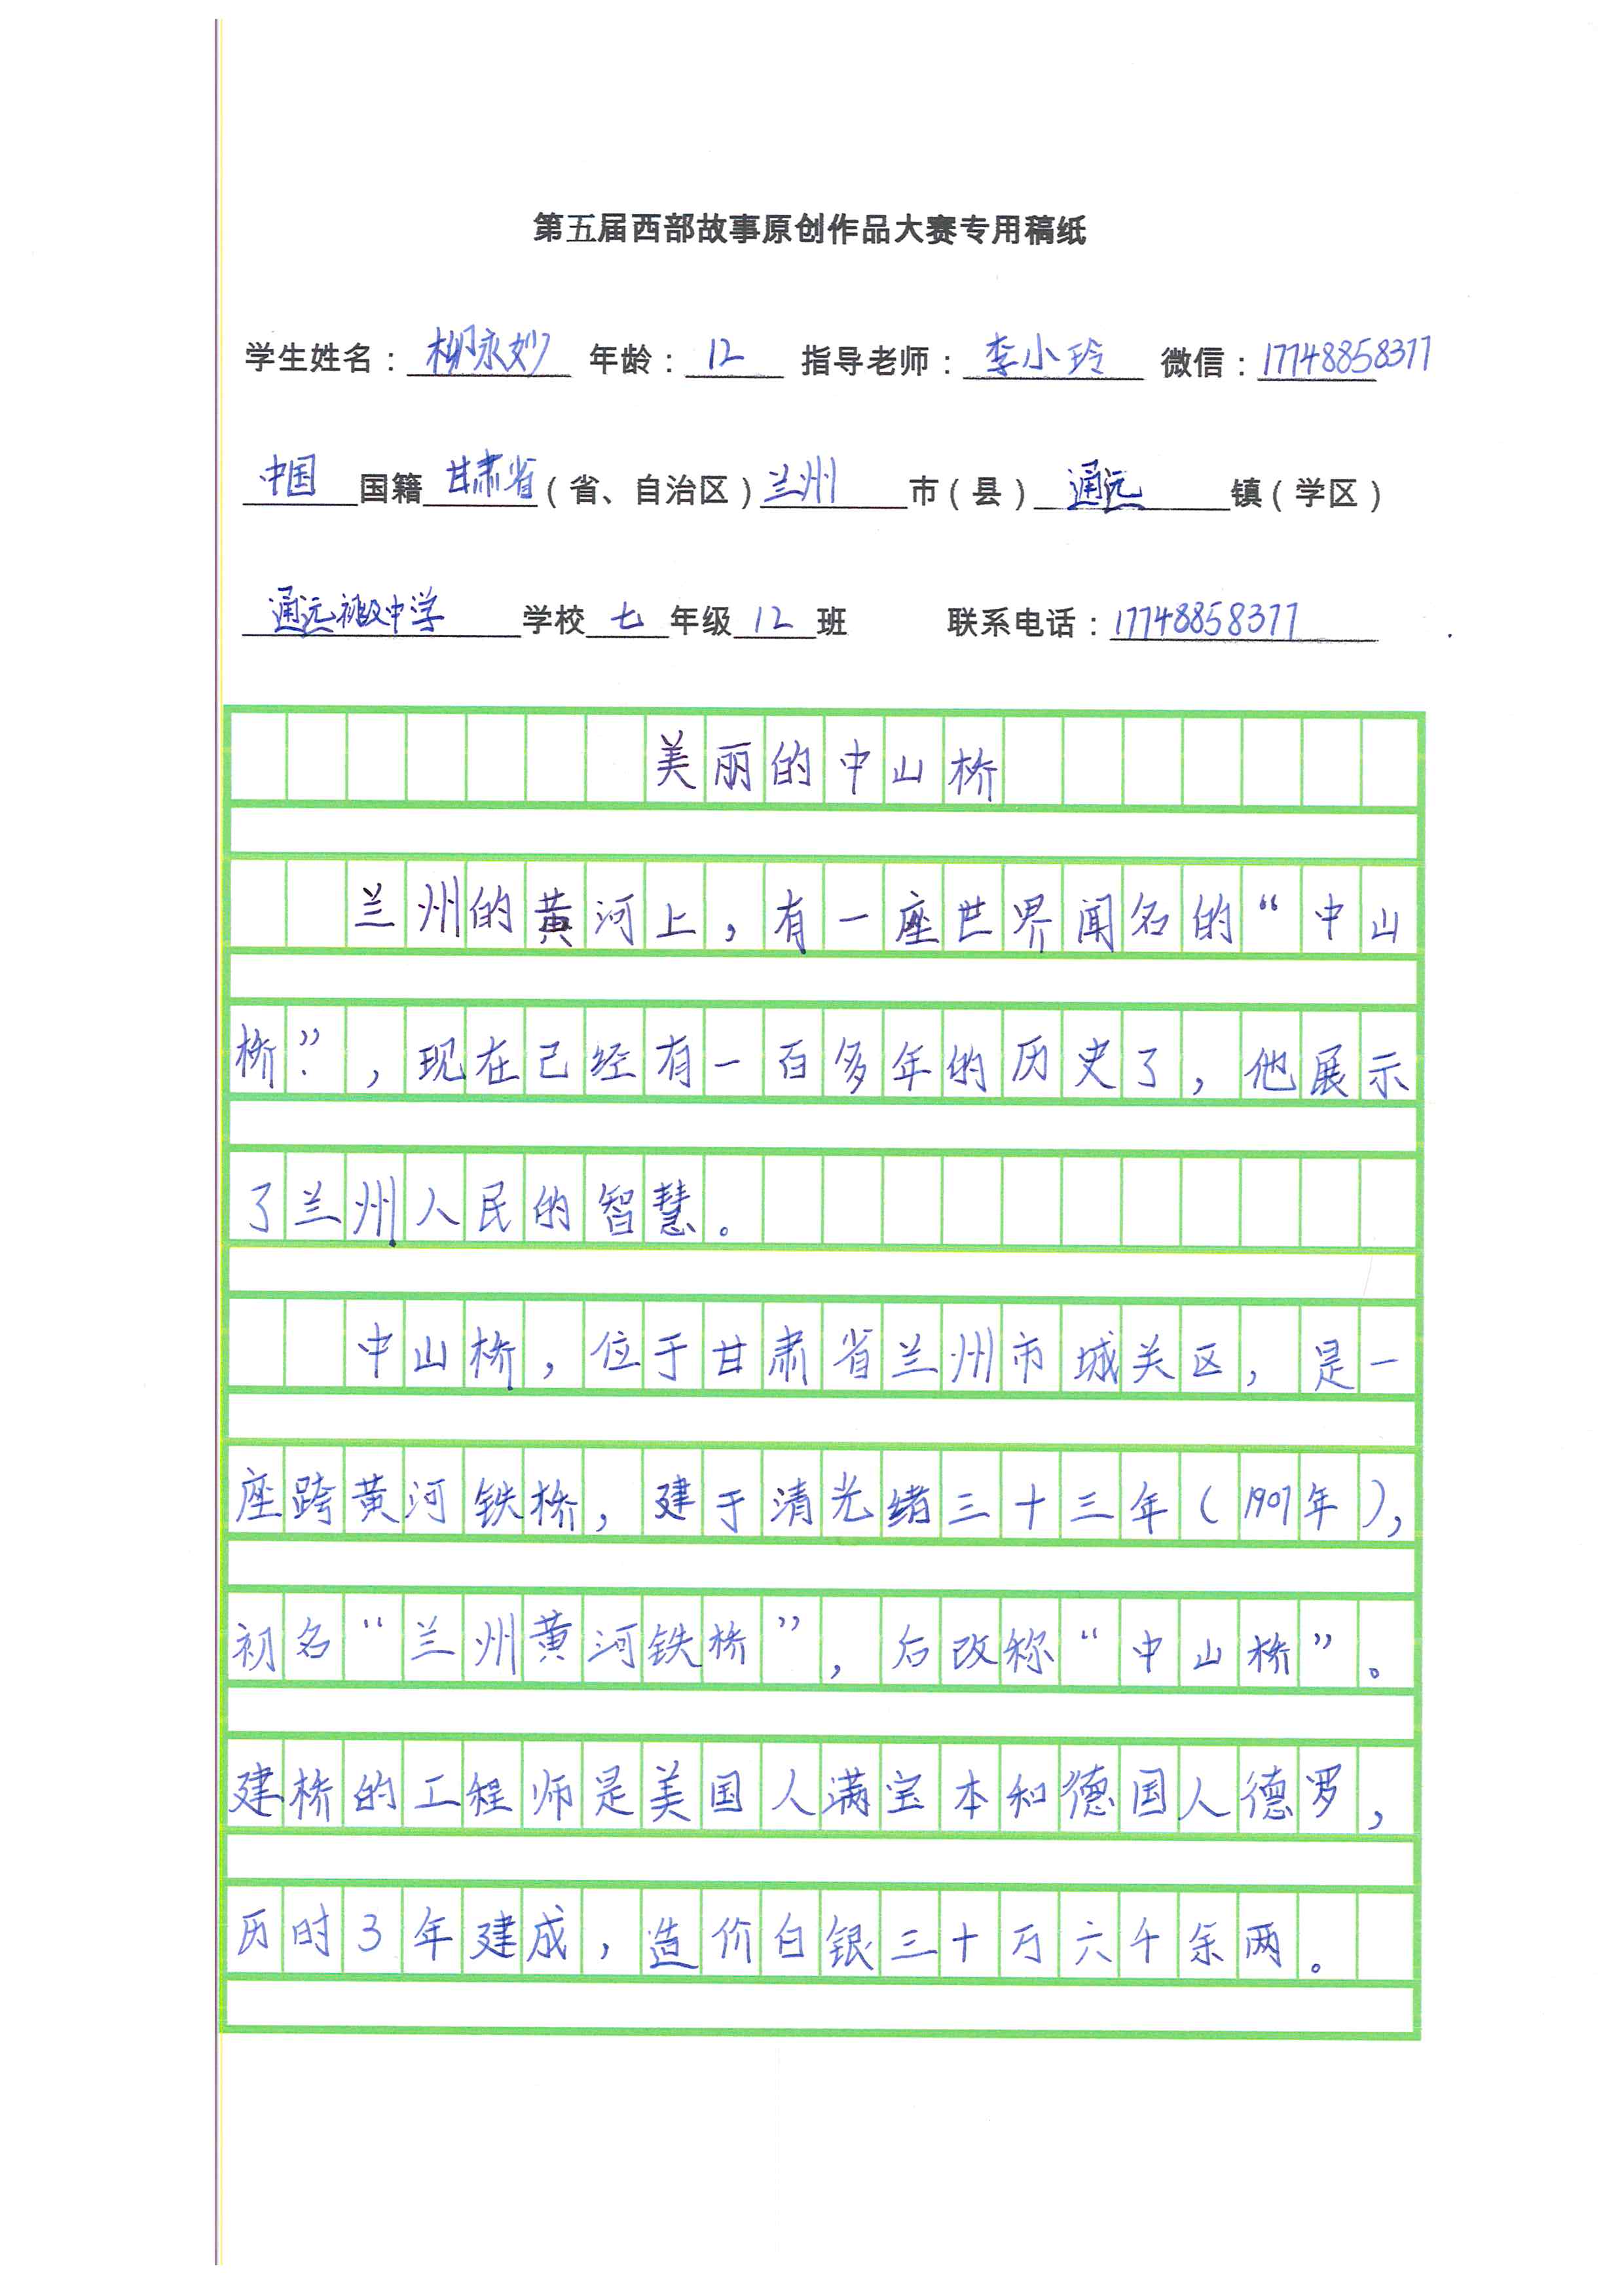 第五届西部故事原创作品大赛专用稿纸
学生姓名：柳永妙 年龄：12 指导老师：李小玲 微信：17748858377
中国国籍甘肃省（省、自治区）兰州市（县）通远镇（学区）
通远初级中学学校七年级12班 联系电话：17748858377
美丽的中山桥
兰州的黄河上，有一座世界闻名的“中山
桥”，现在已经有一百多年的历史了，他展示
了兰州人民的智慧。
中山桥，位于甘肃省兰州市城关区，是一
座跨黄河铁桥，建于清光绪三十三年（1907年），
初名“兰州黄河铁桥”，后改称“中山桥”。
建桥的工程师是美国人满宝本和德国人德罗，
历时3年建成，造价白银三十万六千余两。